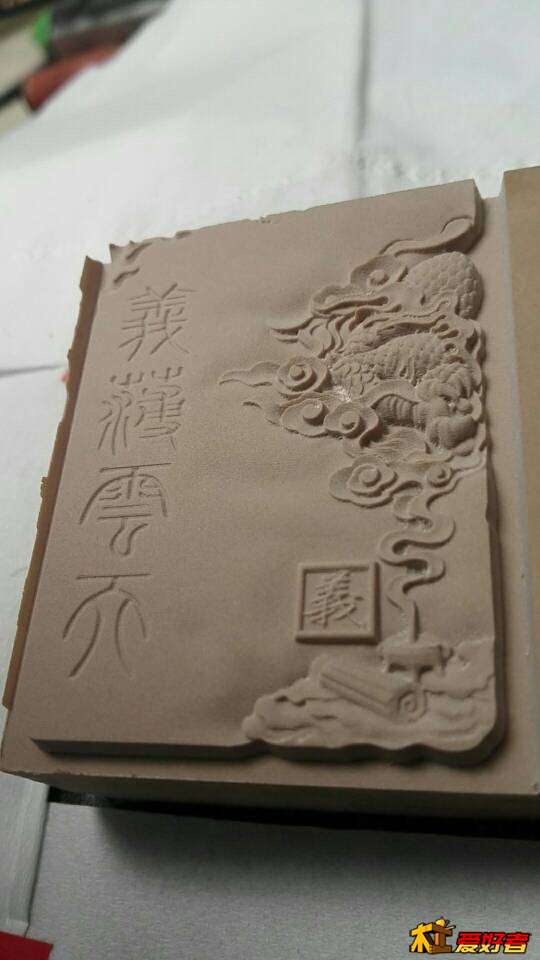 義薄雲天
義
爱好者